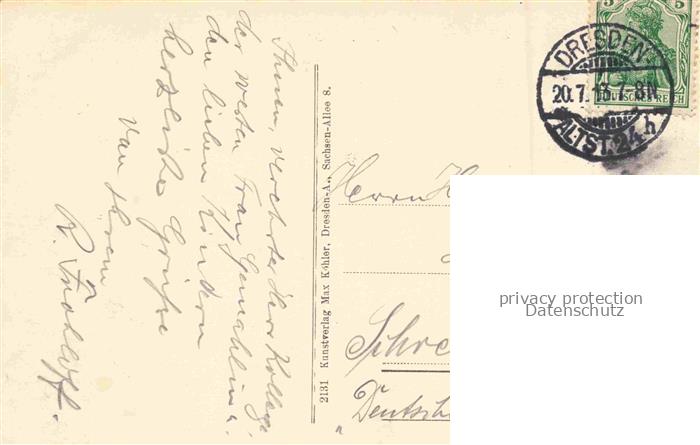 Ihnen, verehrter Herr Kollege!
der werten Frau Gemahlin u.
den lieben Kindern
herzliche Grüße
von Ihrem
R.
2131 Kunstverlag Max Köhler, Dresden-A., Sachsen-Allee 8.
5 5
DEUTSCHES REICH
DRESDEN
20.7.13.7-8N
ALTST. 24 h
Herrn
privacy protection
Datenschutz